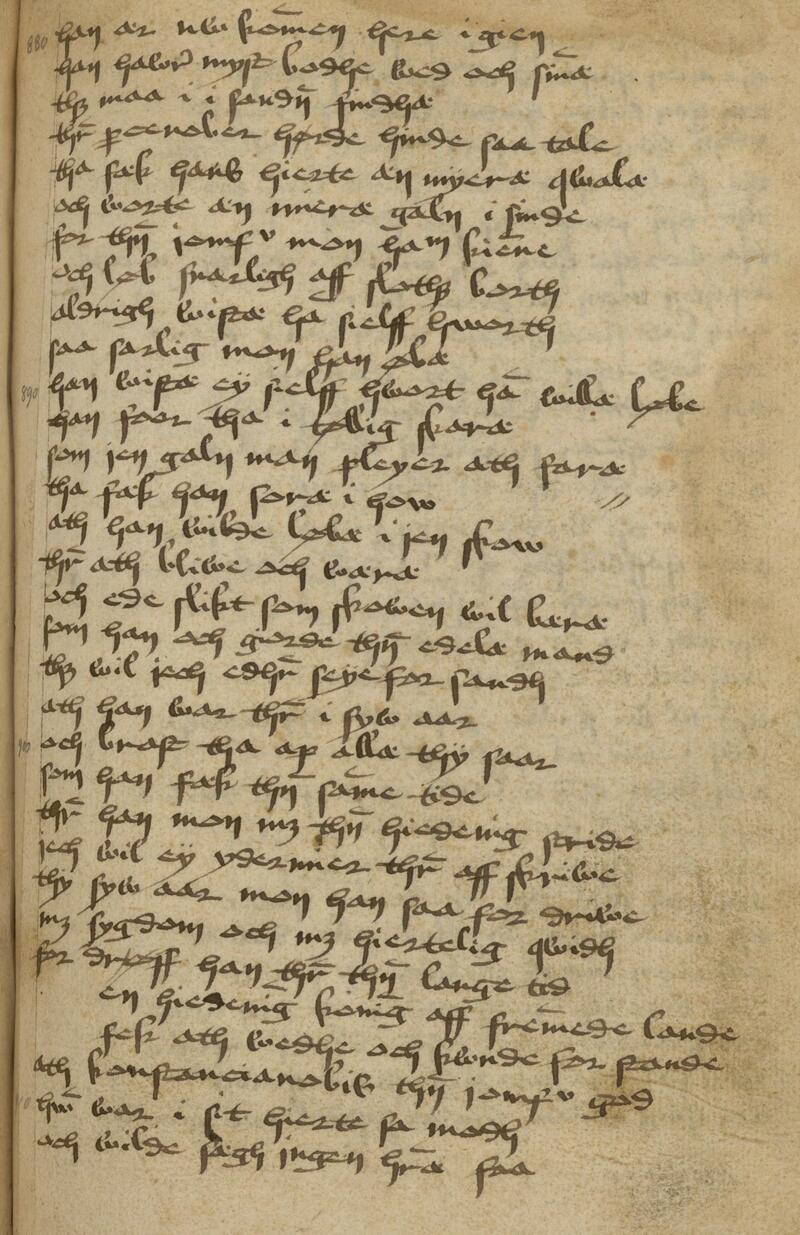 880 han ær nw kom̄en here igien
han hawer myst bodhe wed och sin̄æ
thꝫ maa i i sandh̄ findhæ
thr̄ percenober hørde hinde saa tale
tha fæk hans hierte æn myeræ qwalæ
och worte æn mieræ galn i sinde
for thn̄ iomfv mon ham kien̄e
och løb snarligh aff slothꝫ borth
aldrigh wistæ hā sielff hworth
saa sarlig mon han øbæ
890 han wistæ ey sielff hwort hā willæ løbe
han foor tha i tøllig skaræ
som jen galn man pleyer ath faræ
tha fæk han soræ i how
ath han wilde løbæ i jen skow
thr̄ ath bliwe och wæræ
och ede slikt som skowen wil bæræ
som han och giorde thn̄ edelæ mand
thꝫ wil jech edhr̄ seye for sandh
ath han war thr̄ i syw aar
900 och brast tha ap allæ thy saar
som han fæk thn̄ sam̄e tide
thr̄ han mon mꝫ thn̄ hiedenig stride
jech wil ey ydermier thr̄ aff skriwe
thy syw aar mon han saa for driwe
mꝫ sygdom och mꝫ hiertelig qwidh
for drøff han thr̄ thn̄ lange tid
en hiedenig konīg aff frem̄ede lande
fek ath wedhe och kwnde for stande
ath konstancianobis thn̄ jomfv god
hwn̄ war i sit hierte sa modh
och wilde sægh ingen hr̄æ faa